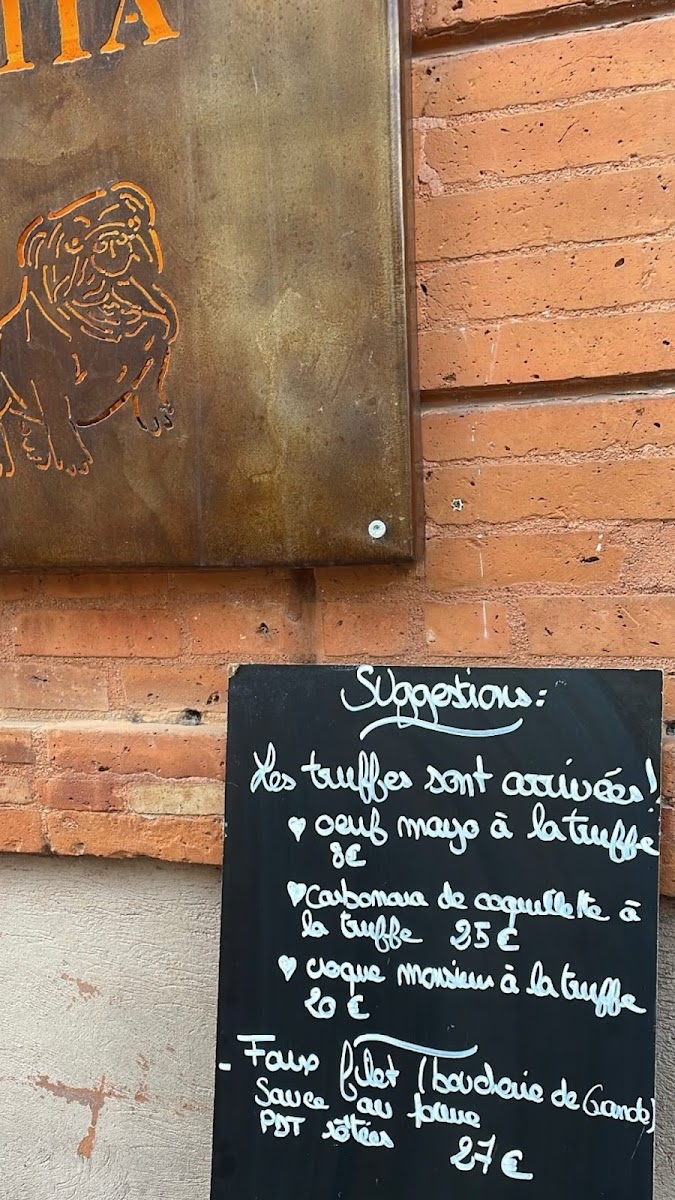 ITA
Suggestions:
Les truffes sont arrivées!
♥ oeuf mayo à la truffe
8€
♥ Carbonara de coquillette à
la truffe 25€
♥ croque monsieur à la truffe
20 €
- Faux filet (boucherie de Grande)
Sauce au
PDT rôties 27€